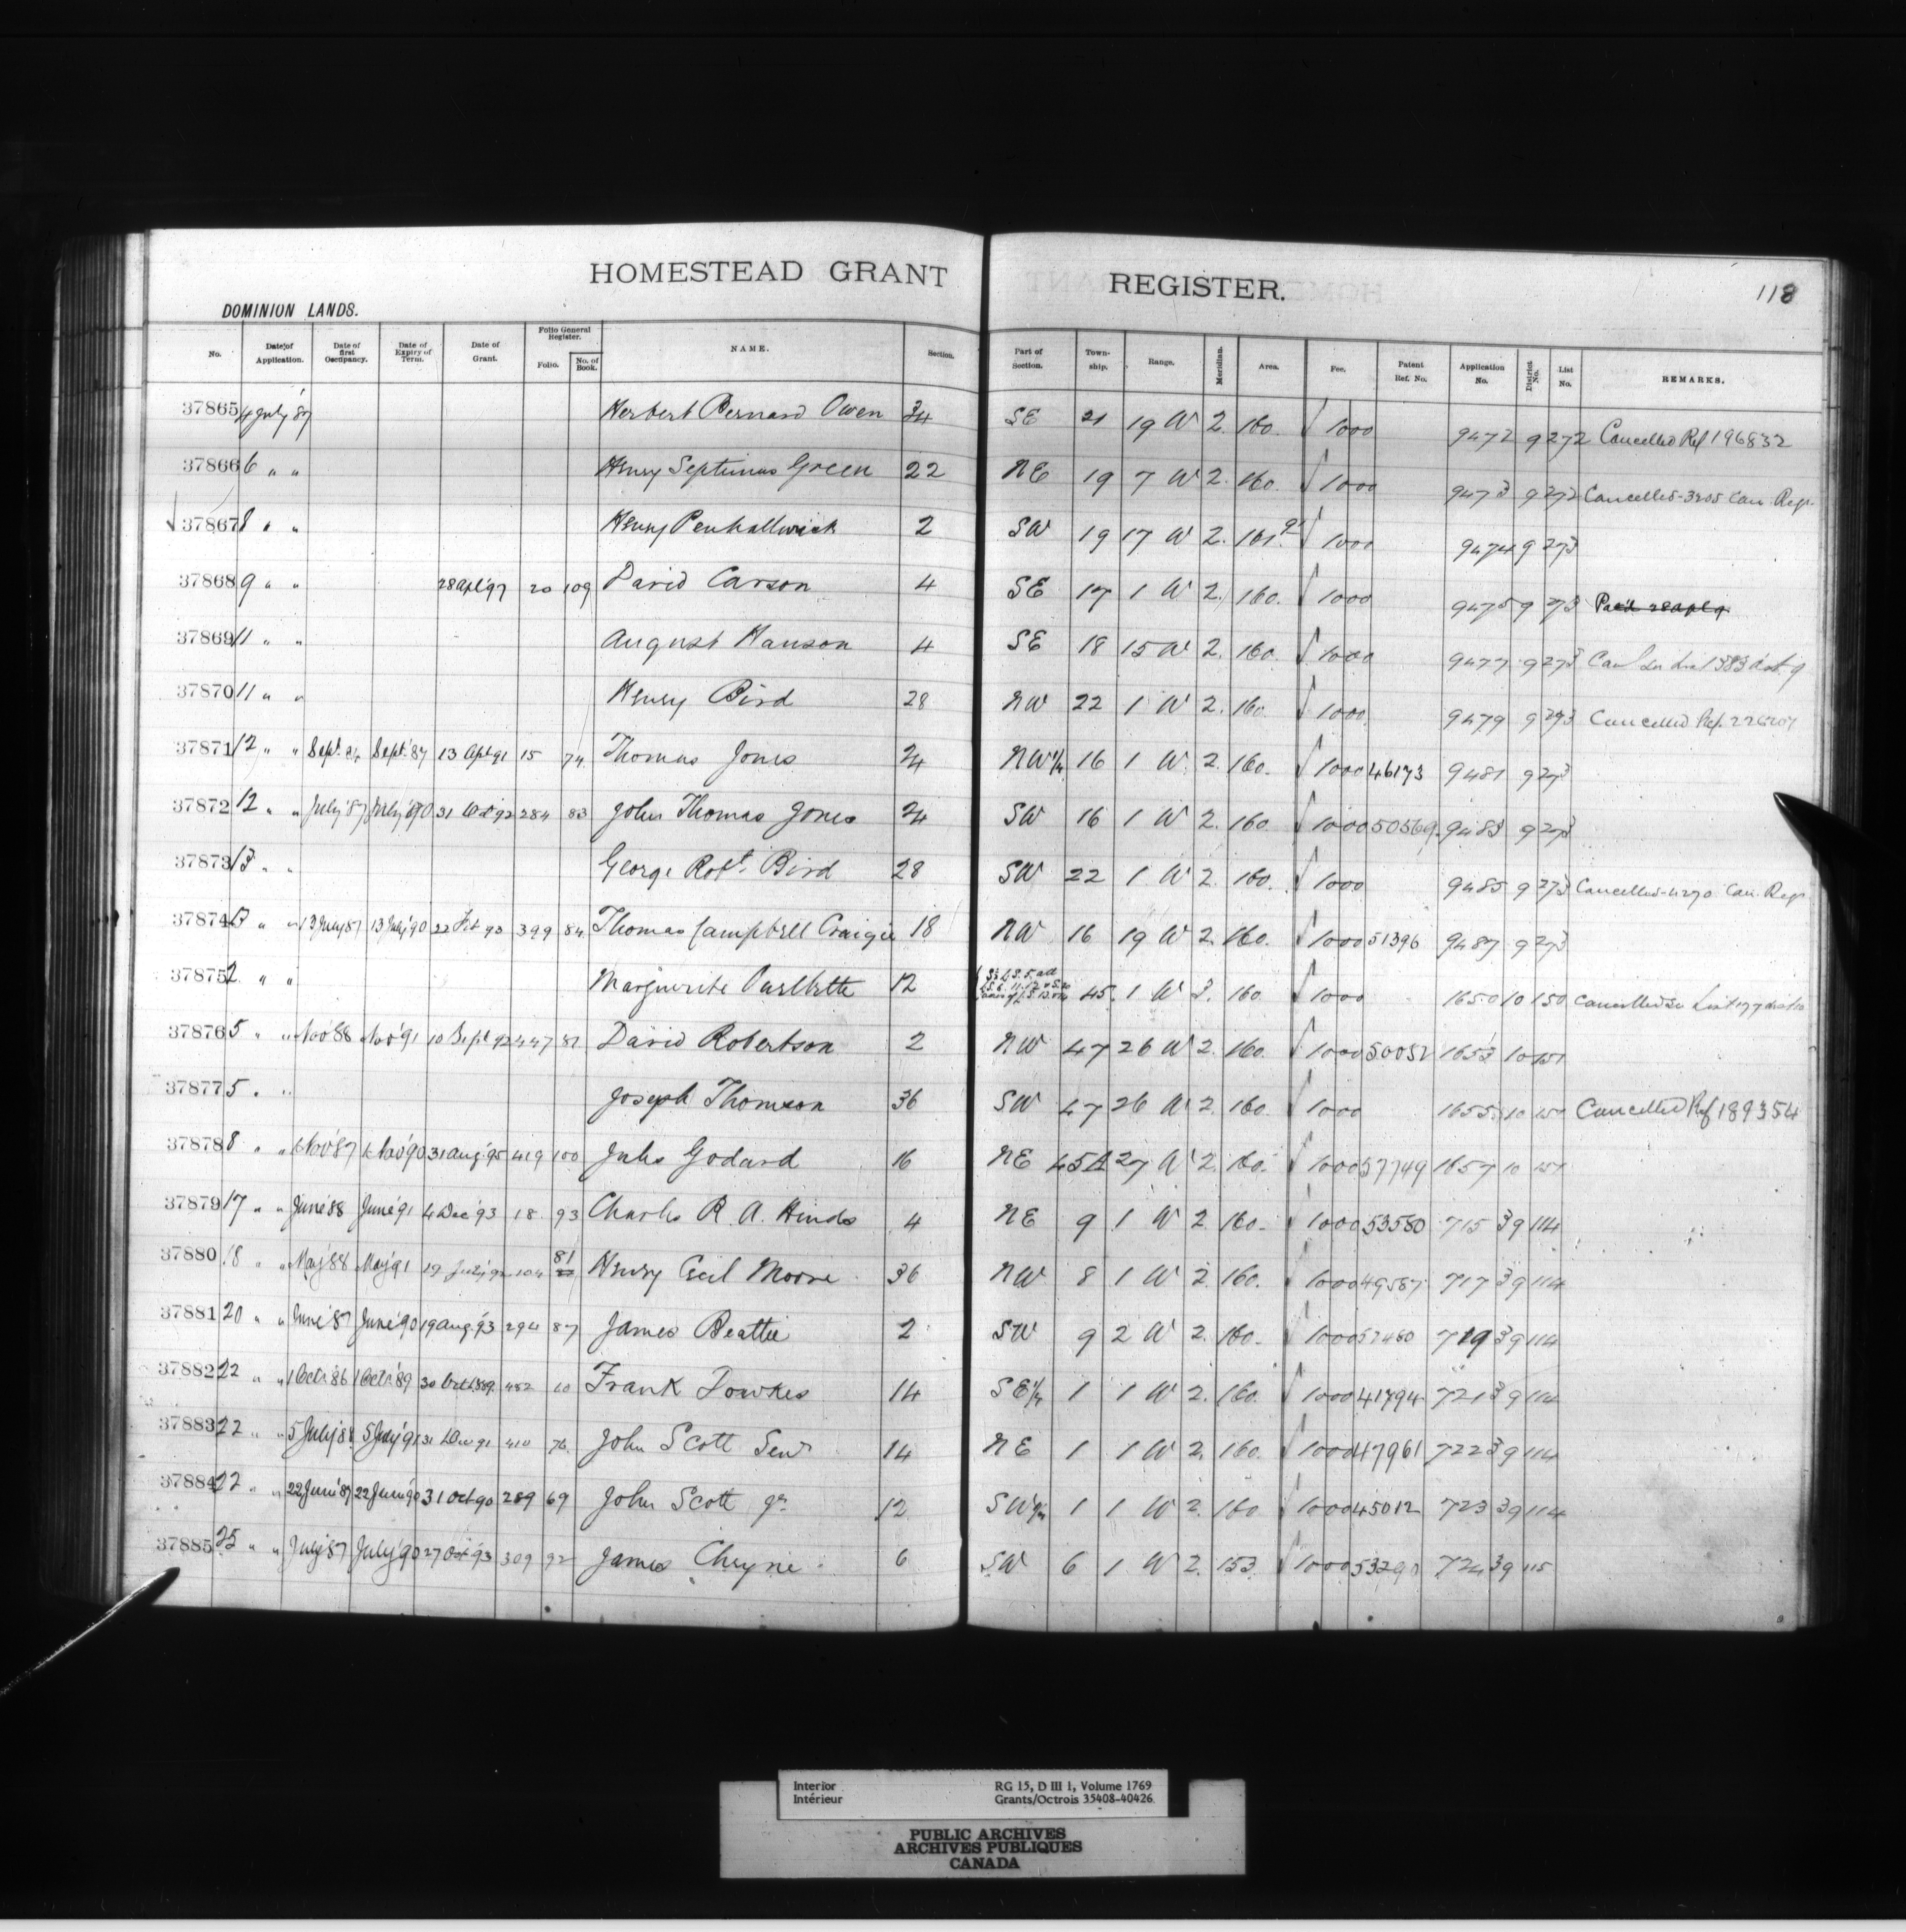 HOMESTEAD GRANT REGISTER. 118
DOMINION LANDS.
No. Date of Application. Date of first Occupancy. Date of Expiry of Term. Date of Grant. Folio General Register. Folio. No. of Book. NAME. Section. Part of Section. Township. Range. Meridian. Area. Fee. Patent Ref. No. Application No. District No. List No. REMARKS.
37865 4 July '87 Herbert Bernard Owen 34 SE 21 19 W 2. 160. 1000 9472 9 272 Cancelled Ref 196832
37866 6 " " Henry Septimus Green 22 NE 19 7 W 2. 160. 1000 9473 9 272 Cancelled-3205 Can. Regr.
37867 8 " " Henry Penhallwick 2 SW 19 17 W 2. 1000 9474 9 273
37868 9 " " 28 Apl '97 20 109 David Carson 4 SE 17 1 W 2. 160. 1000 9475 9 273
37869 11 " " August Hanson 4 SE 18 15 W 2. 160. 1000 9477 9 273
37870 11 " " Henry Bird 28 NW 22 1 W 2. 160. 1000 9479 9 273 Cancelled Ref. 226207
37871 12 " " Sept. Sept. '87 13 Apl 91 15 74 Thomas Jones 24 NW 1/4 16 1 W 2. 160. 1000 46173 9481 9 273
37872 12 " " July '87 July '90 31 Oct 92 284 83 John Thomas Jones 24 SW 16 1 W 2. 160. 1000 50569 9483 9 273
37873 13 " " George Robt. Bird 28 SW 22 1 W 2. 160. 1000 9485 9 273 Cancelled-4270 Can. Regr.
37874 13 " " 13 July 87 13 July '90 22 Feb 93 399 84 Thomas Campbell Craigie 18 NW 16 19 W 2. 160. 1000 51396 9487 9 273
37875 2 " " Marguerite Ouellette 12 45 1 W 3. 160 1000 1650 10 150
37876 5 " " Nov '88 Nov '91 10 Sept 92 447 81 David Robertson 2 NW 47 26 W 2. 160. 1000 50052 1653 10 151
37877 5 " " Joseph Thomson 36 SW 47 26 W 2. 160. 1000 1655 10 151 Cancelled Ref 189354
37878 8 " " 6 Nov '87 6 Nov '90 31 Aug. '95 419 100 Jules Godard 16 NE 45A 27 W 2. 160. 1000 57749 1657 10 151
37879 17 " " June '88 June '91 4 Dec '93 18 93 Charles R. A. Hinds 4 NE 9 1 W 2. 160. 1000 53580 715 39 114
37880 18 " " May '88 May '91 19 July '92 104 81 Henry Cecil Moore 36 NW 8 1 W 2. 160. 1000 49587 717 39 114
37881 20 " " June '87 June '90 19 Aug. '93 294 87 James Beattie 2 SW 9 2 W 2. 160. 1000 719 39 114
37882 22 " " 1 Oct. 86 1 Oct. '89 30 Oct. 1889 452 60 Frank Fowkes 14 SE 1/4 1 1 W 2. 160. 1000 41794 721 39 114
37883 22 " " 5 July '88 5 July '91 31 Dec 91 410 76 John Scott Senr 14 NE 1 1 W 2. 160. 1000 47961 722 39 114
37884 22 " " 22 June '87 22 June '90 31 Oct 90 289 69 John Scott Jr. 12 SW 1/4 1 1 W 2. 160 1000 45012 723 39 114
37885 25 " " July '87 July '90 27 Oct '93 309 92 James Cheyne 6 SW 6 1 W 2. 153. 1000 724 39 115
Interior RG 15, D III 1, Volume 1769
Intérieur Grants/Octrois 35408-40426
PUBLIC ARCHIVES
ARCHIVES PUBLIQUES
CANADA